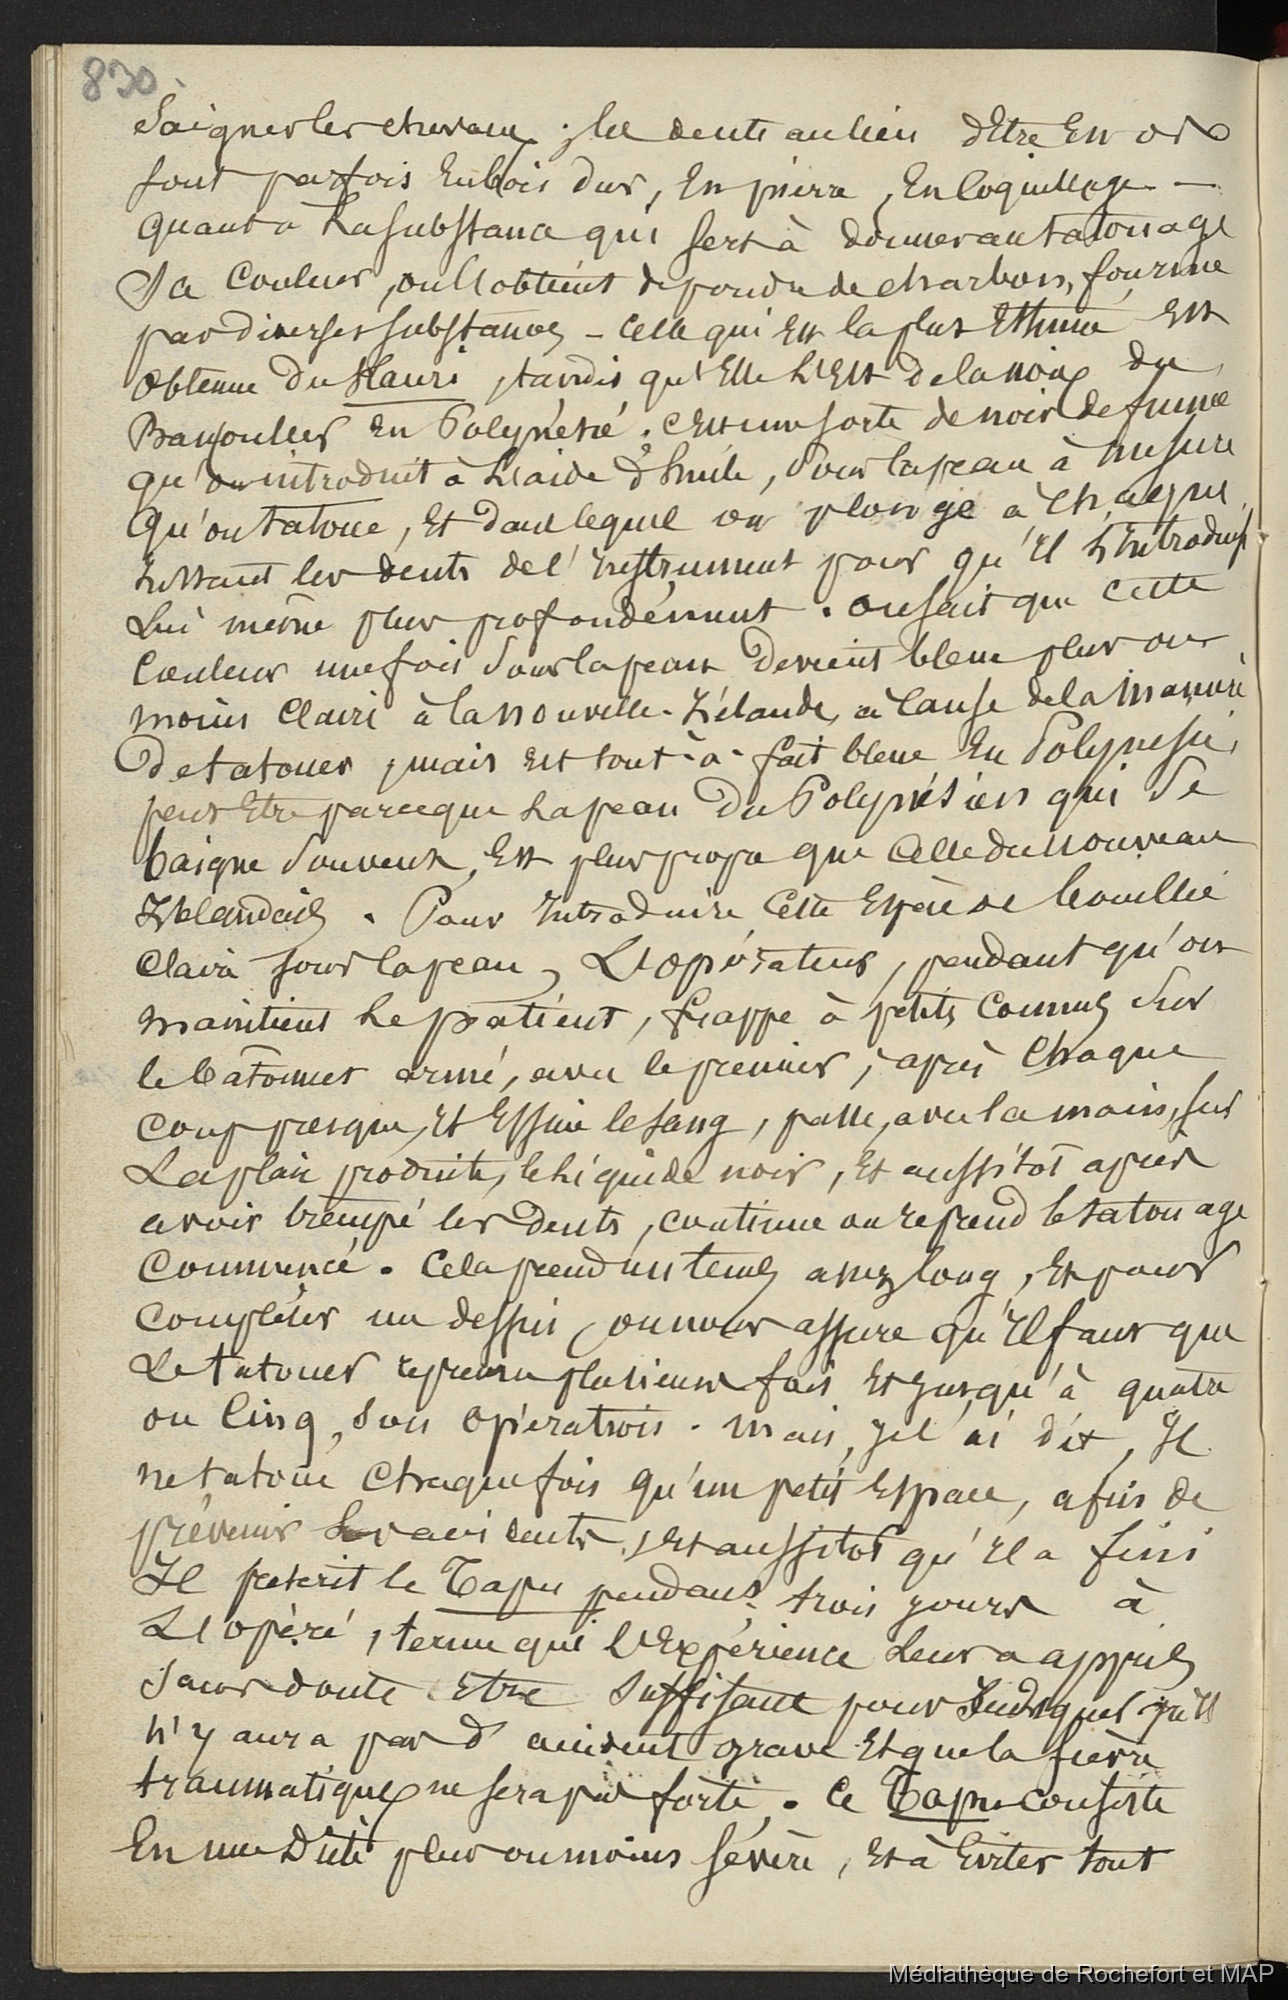 830
Saigner les chevaux ; les dents au lieu d'Etre En os
sont parfois En bois dur, En pierre, En Coquillage —
quant à la substance qui sert à donner au tatouage
sa Couleur, on l'obtient de poudre de charbon, fournie
par diverses substances - Celle qui Est la plus Estimée Est
obtenue du Kauri, tandis qu'Elle l'Est de la noix du
Bancoulier En Polynésie. C'est une sorte de noir de fumée
qu'on introduit à l'aide d'huile, sous la peau à mesure
qu'on tatoue, Et dans lequel on plonge à chaque
Instant les dents de l'Instrument pour qu'il l'Introduise
Lui même plus profondément. on sait que Cette
Couleur une fois sous la peau devient bleue plus ou
moins Claire à la nouvelle-Zélande, à Cause de la manière
de tatouer, mais est tout-à-fait bleue En Polynésie,
peut Etre parceque la peau du Polynésien qui se
baigne souvent, Est plus propre que Celle du nouveau
Zélandais. Pour Introduire Cette Espèce de bouillie
Claire sous la peau, L'opérateur, pendant qu'on
maintient le patient, frappe à petits Coups sur
le bâtonnet armé, avec le premier ; après Chaque
Coup presque, Il Essuie le sang, passe, avec la main, sur
La plaie produite, le liquide noir, Et aussitôt après
avoir trempé les dents, continue ou reprend le tatouage
Commencé. Cela prend un tems assez long, Et pour
Compléter un dessin, on nous assure qu'Il faut que
Le tatoueur reprenne plusieurs fois Et jusqu'à quatre
ou Cinq, son opération. mais, je l'ai dit, Il
ne tatoue Chaque fois qu'un petit Espace, afin de
prévenir les accidents, Et aussitôt qu'Il a fini
Il prescrit le Tapu pendant trois jours à
L'opéré, terme que l'Expérience leur a appris
sans doute Etre suffisant pour Indiquer qu'Il
n'y aura pas d'accident grave Et que la fièvre
traumatique ne sera pas forte. Ce Tapu consiste
En une Diète plus ou moins sévère, Et à Eviter tout
Médiathèque de Rochefort et MAP